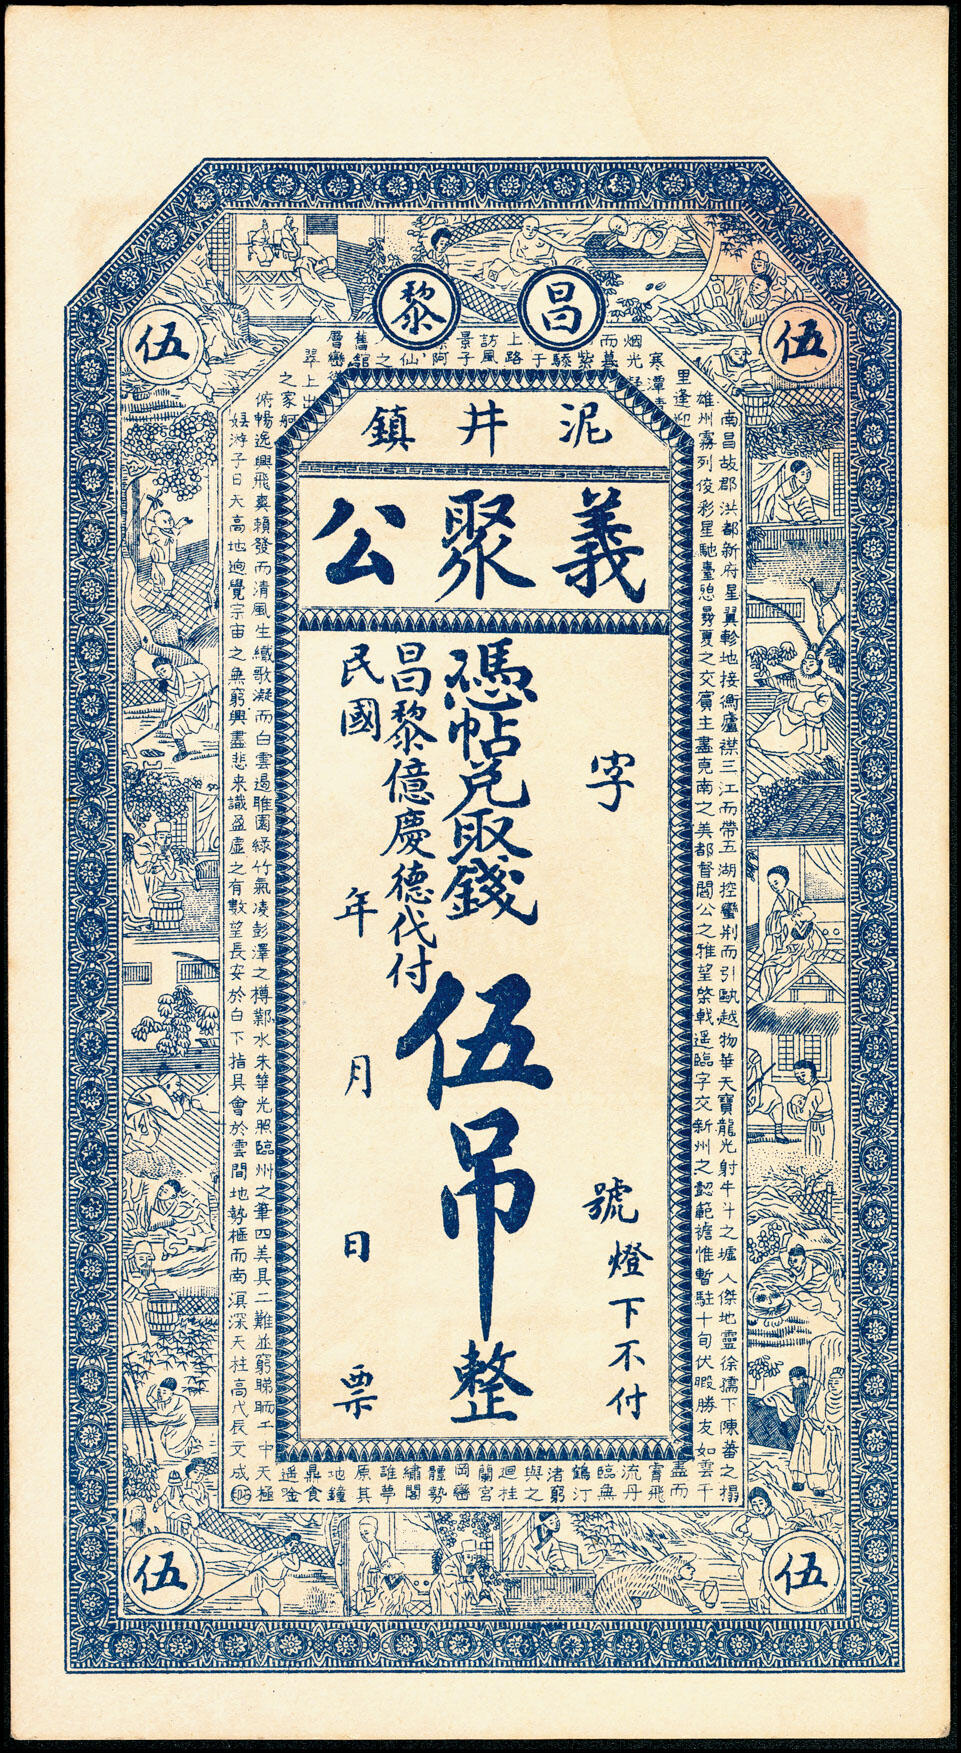 昌黎
伍
伍
泥井鎮
義聚公
字 號燈下不付
憑帖兌取錢伍吊整
昌黎億慶德代付
民國 年 月 日 票
南昌故郡洪都新府星翼軫地接衡廬襟三江而帶五湖控蠻荆而引甌越物華天寶龍光射牛斗之墟人傑地靈徐孺下陳蕃之榻
雄州霧列俊彩星馳臺夏之交賓主盡東南之美都督閻公之雅望棨戟遥臨宇文新州之懿範襜帷暫駐十旬休暇勝友如雲千
里逢迎
俯暢逸興飛爽籟發而清風生纖歌凝而白雲遏睢園綠竹氣凌彭澤之樽鄴水朱華光照臨州之筆四美具二難並窮睇眄于中天
娱游于日天高地迥覺宇宙之無窮興盡悲来識盈虛之有數望長安於白下指吳會於雲間地勢極而南溟深天柱高戊辰文成
伍
伍